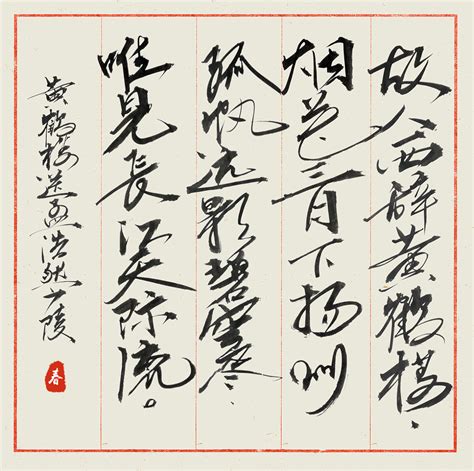 故人西辞黄鶴楼、
烟花三月下扬州
孤帆远影碧空尽、
唯見長江天际流。
黄鶴楼送孟浩然广陵
春